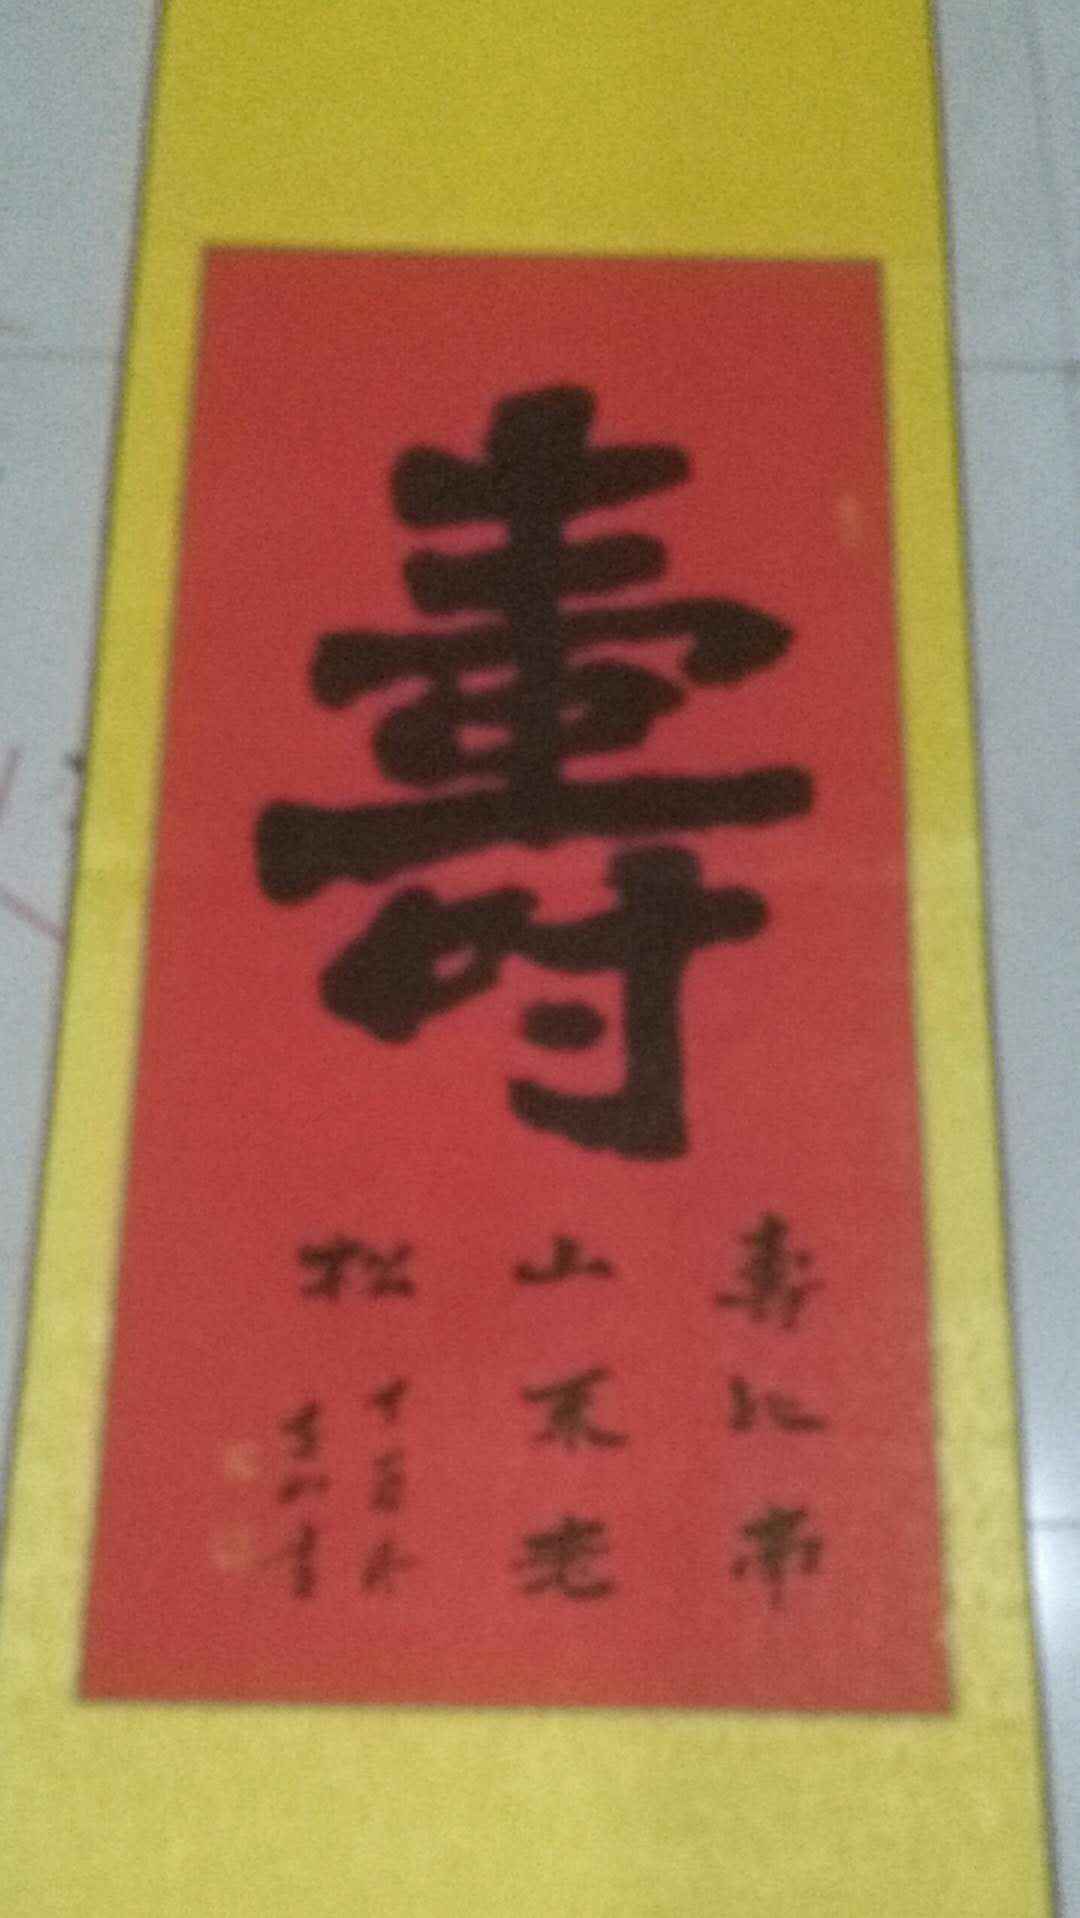 壽
壽比南
山不老
松